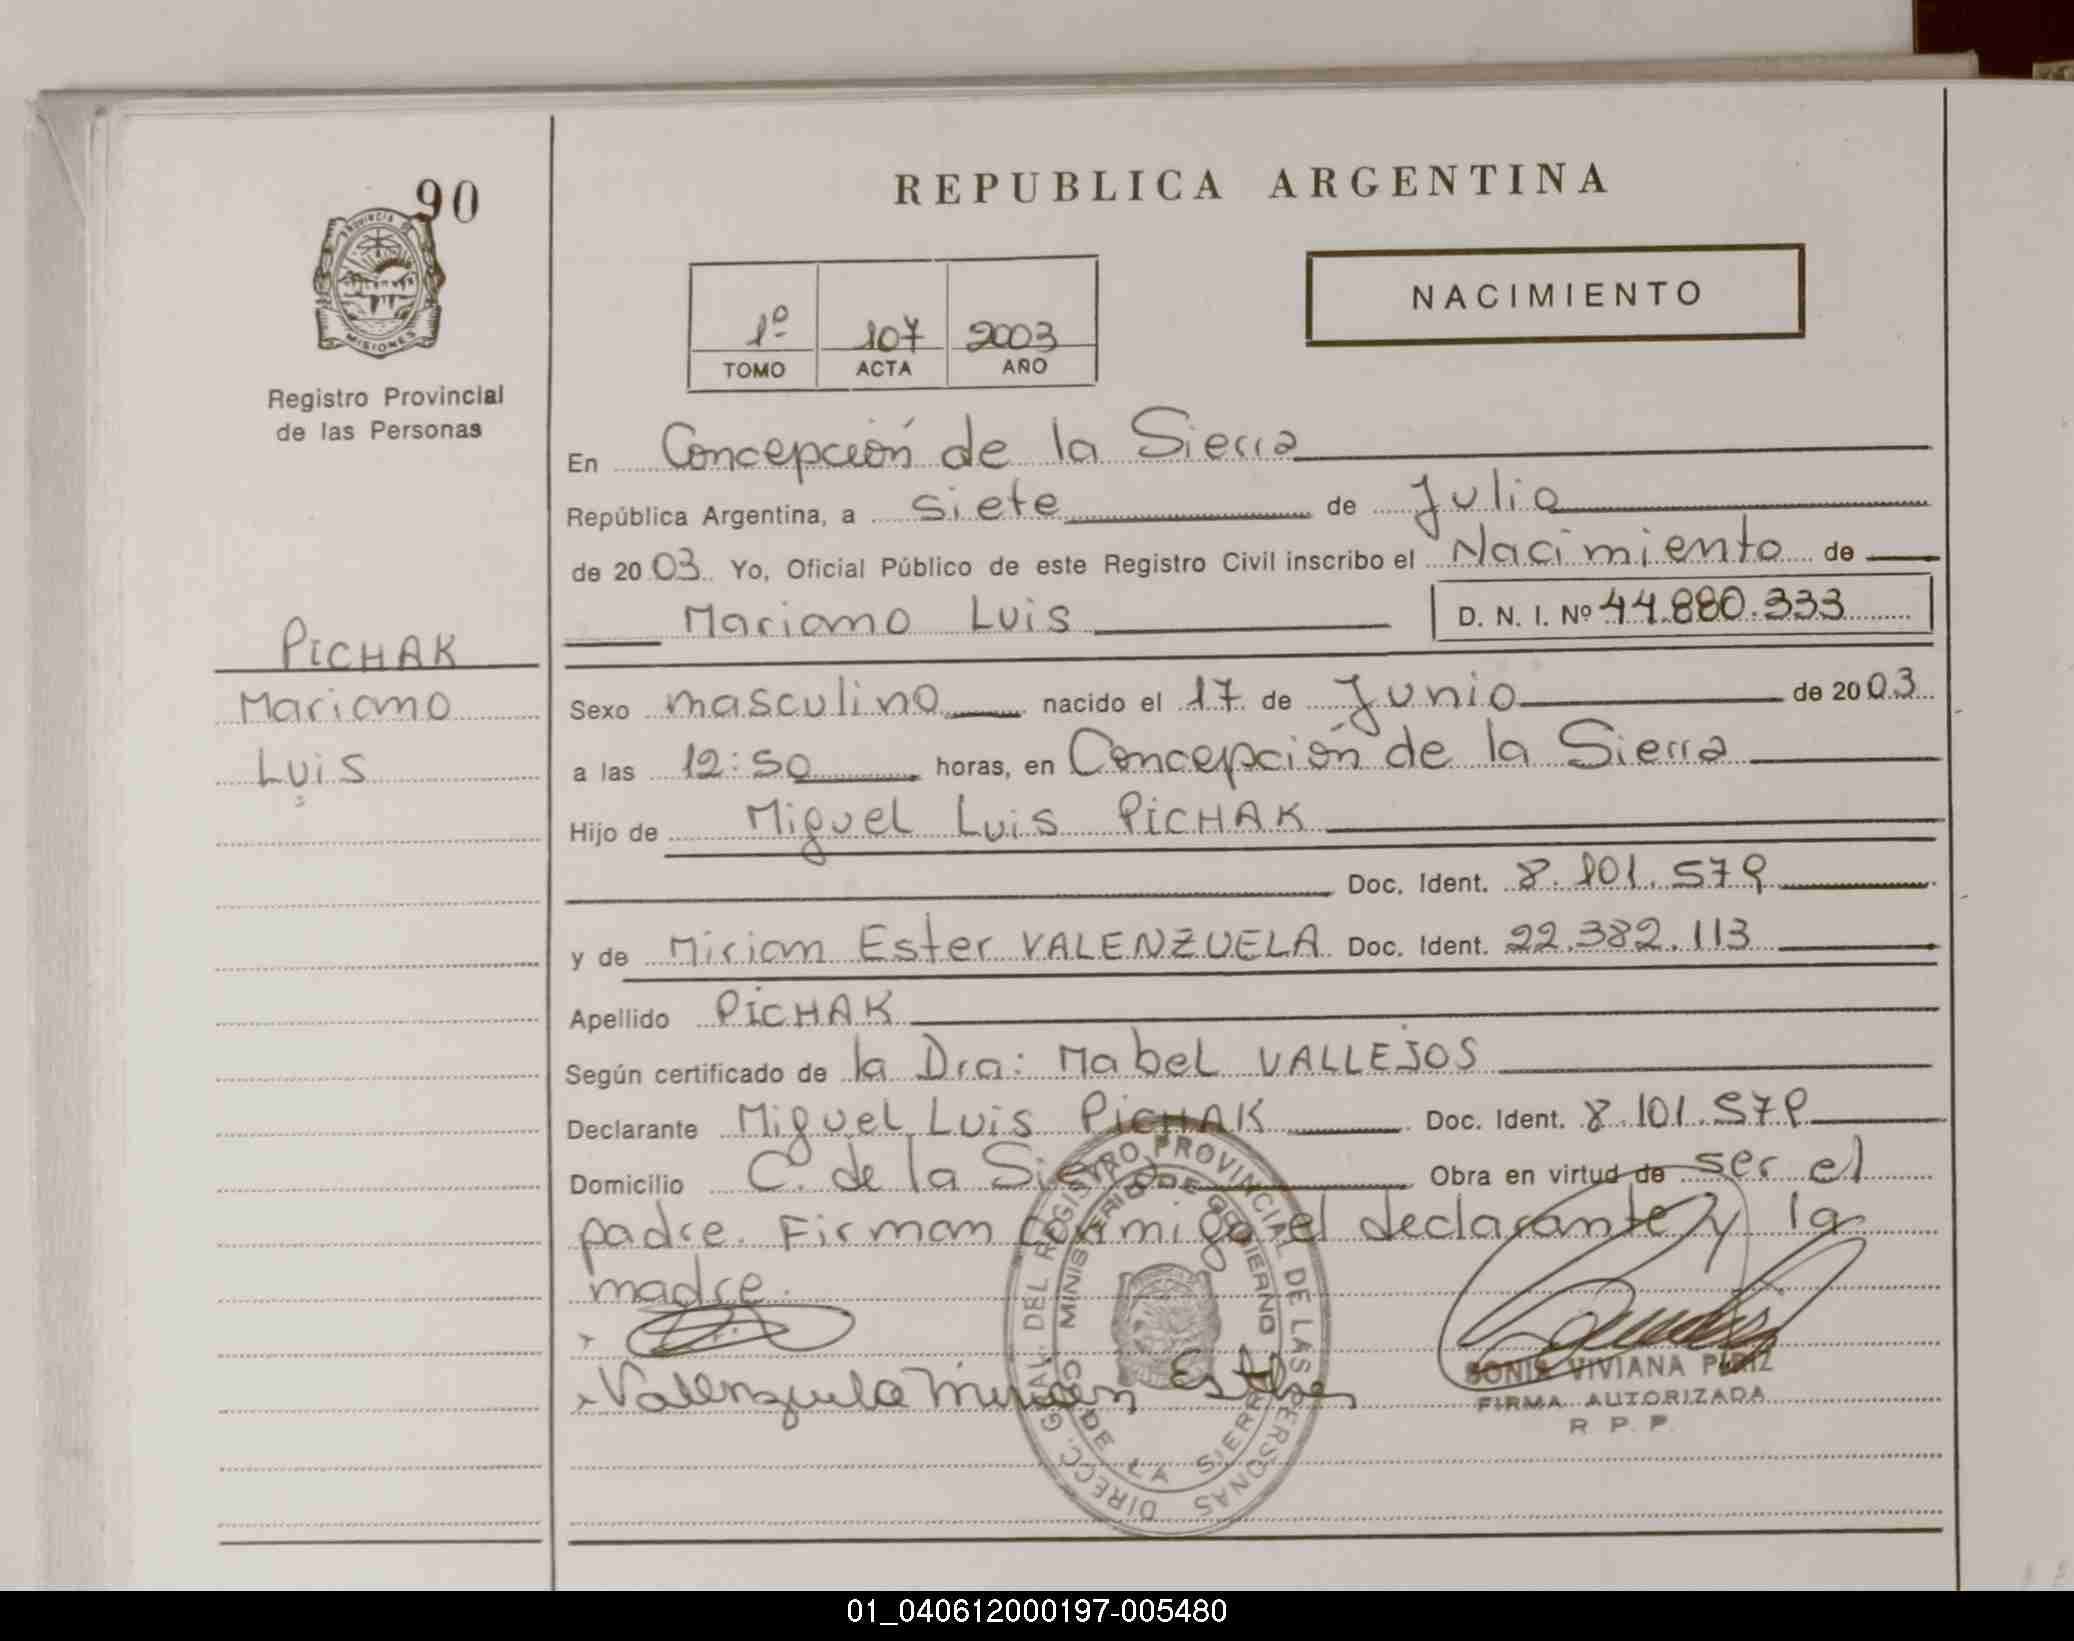 90
PROVINCIA DE
MISIONES
Registro Provincial
de las Personas
PICHAK
Mariano
Luis
REPUBLICA ARGENTINA
NACIMIENTO
1º 107 2003
TOMO ACTA AÑO
En Concepción de la Sierra
República Argentina, a siete de Julio
de 2003. Yo, Oficial Público de este Registro Civil inscribo el Nacimiento de
Mariano Luis D. N. I. Nº 44.880.333
Sexo masculino nacido el 17 de Junio de 2003
a las 12:50 horas, en Concepción de la Sierra
Hijo de Miguel Luis PICHAK
Doc. Ident. 8.101.579
y de Miriam Ester VALENZUELA Doc. Ident. 22.382.113
Apellido PICHAK
Según certificado de la Dra: Mabel VALLEJOS
Declarante Miguel Luis PICHAK Doc. Ident. 8.101.579
Domicilio C. de la Sierra Obra en virtud de ser el
padre. Firman conmigo el declarante y la
madre.
Valenzuela Miriam Esther
DIRECC. GRAL. DEL REGISTRO PROVINCIAL DE LAS PERSONAS
MINISTERIO DE GOBIERNO
DE LA SIERRA
SONIA VIVIANA PIRIZ
FIRMA AUTORIZADA
R. P. P.
01_040612000197-005480